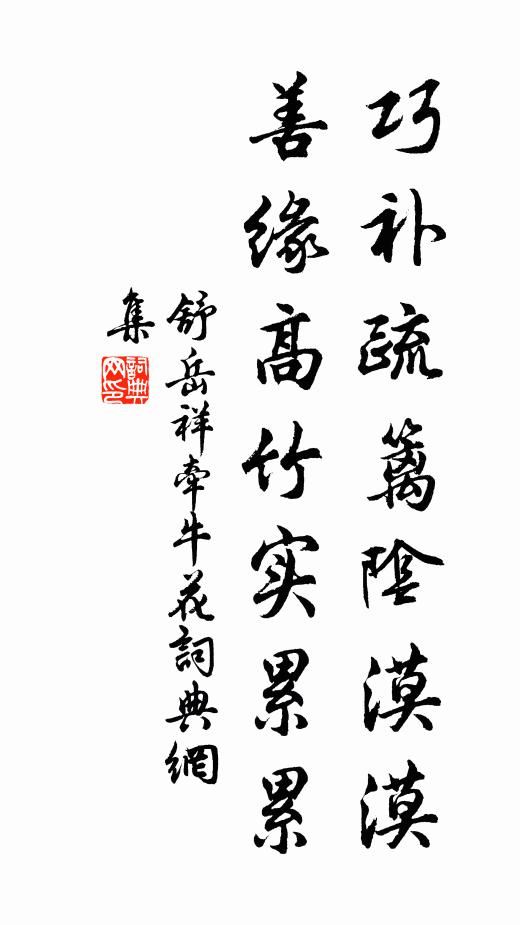 巧补疏篱陰漠漠
善缘高竹实累累
舒岳祥牽牛花詞典網
集
詞典网印